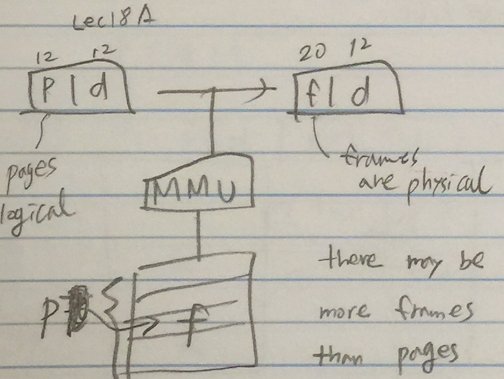 Lec18A
12 12
p | d
20 12
f | d
pages
logical
frames
are physical
MMU
p
f
there may be
more frames
than pages